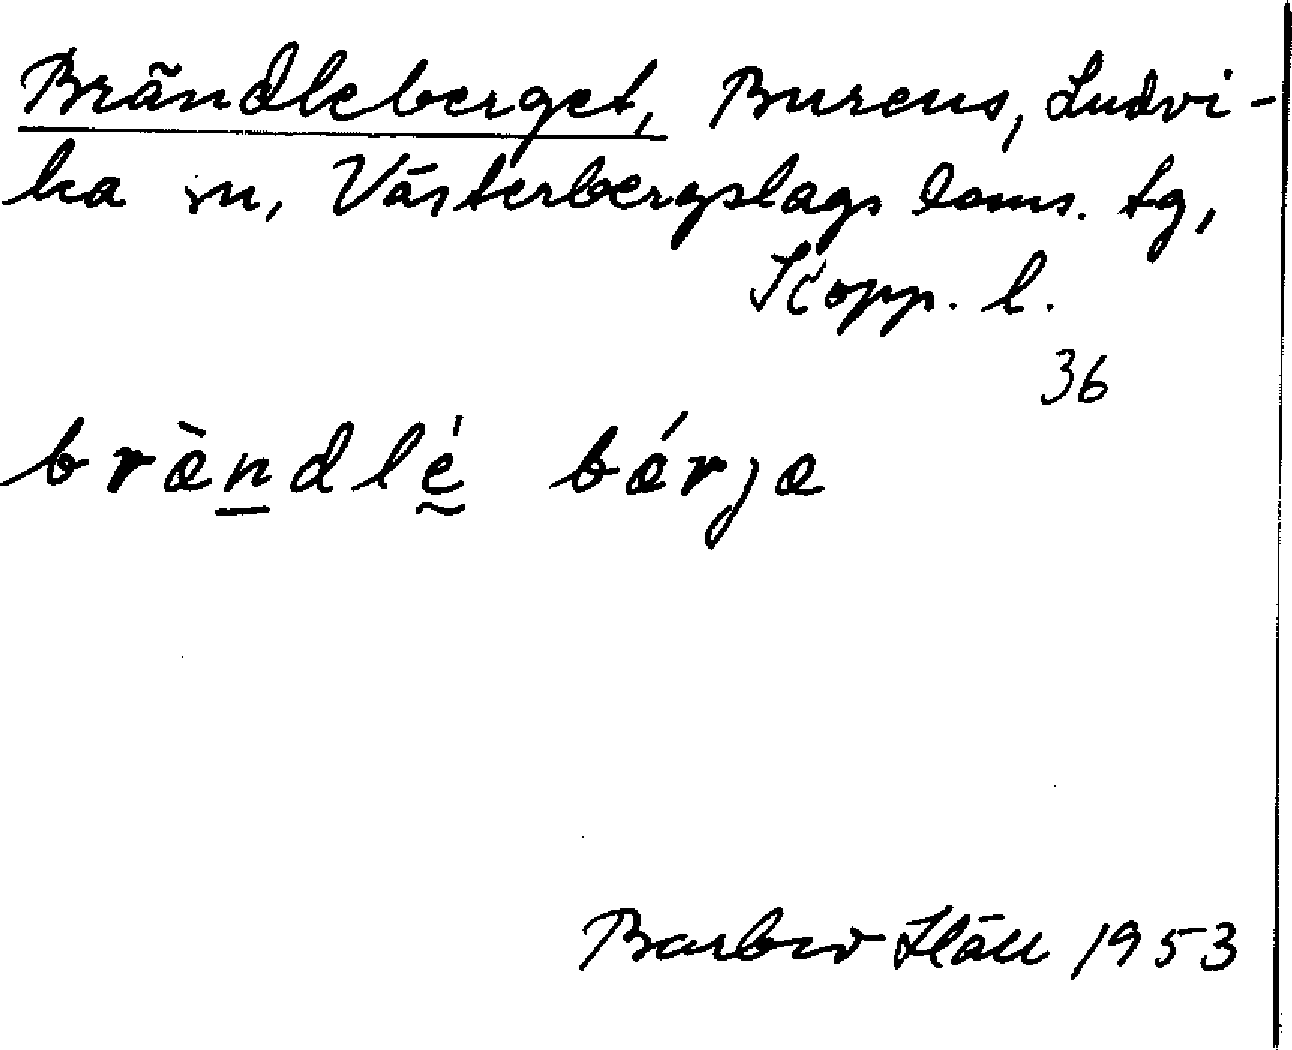 Brändleberget, Burens, Ludvi-
ka sn, Västerbergslags doms. tg,
Kopp. l.
36
brànd̲lḛ́ bǽrjа
Barbro Häll 1953